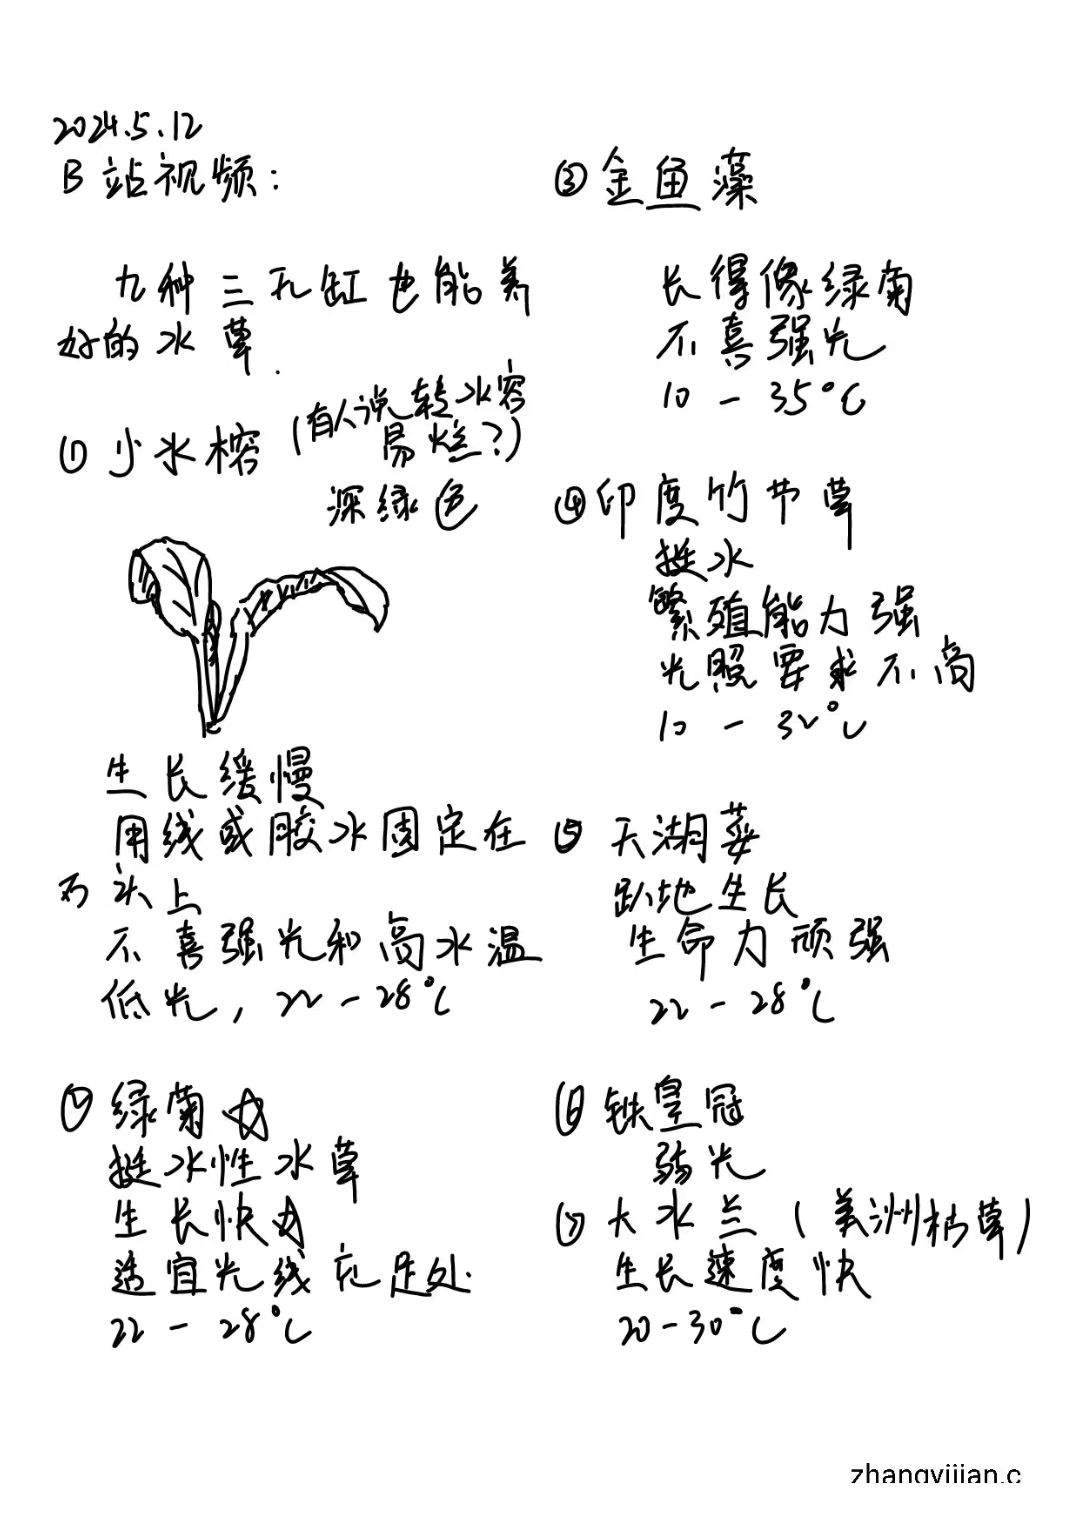 2024.5.12
B站视频：
九种三孔缸也能养
好的水草.
① 小水榕
(有人说转水容
易烂?)
深绿色
生长缓慢
用线或胶水固定在
石头上
不喜强光和高水温
低光, 22-28℃
② 绿菊☆
挺水性水草
生长快
适宜光线充足处.
22-28℃
③ 金鱼藻
长得像绿菊
不喜强光
10-35℃
④ 印度竹节草
挺水
繁殖能力强
光照要求不高
10-32℃
⑤ 天湖荽
趴地生长
生命力顽强
22-28℃
⑥ 铁皇冠
弱光
⑦ 大水兰 (美洲枯草)
生长速度快
20-30℃
zhangyijian.c